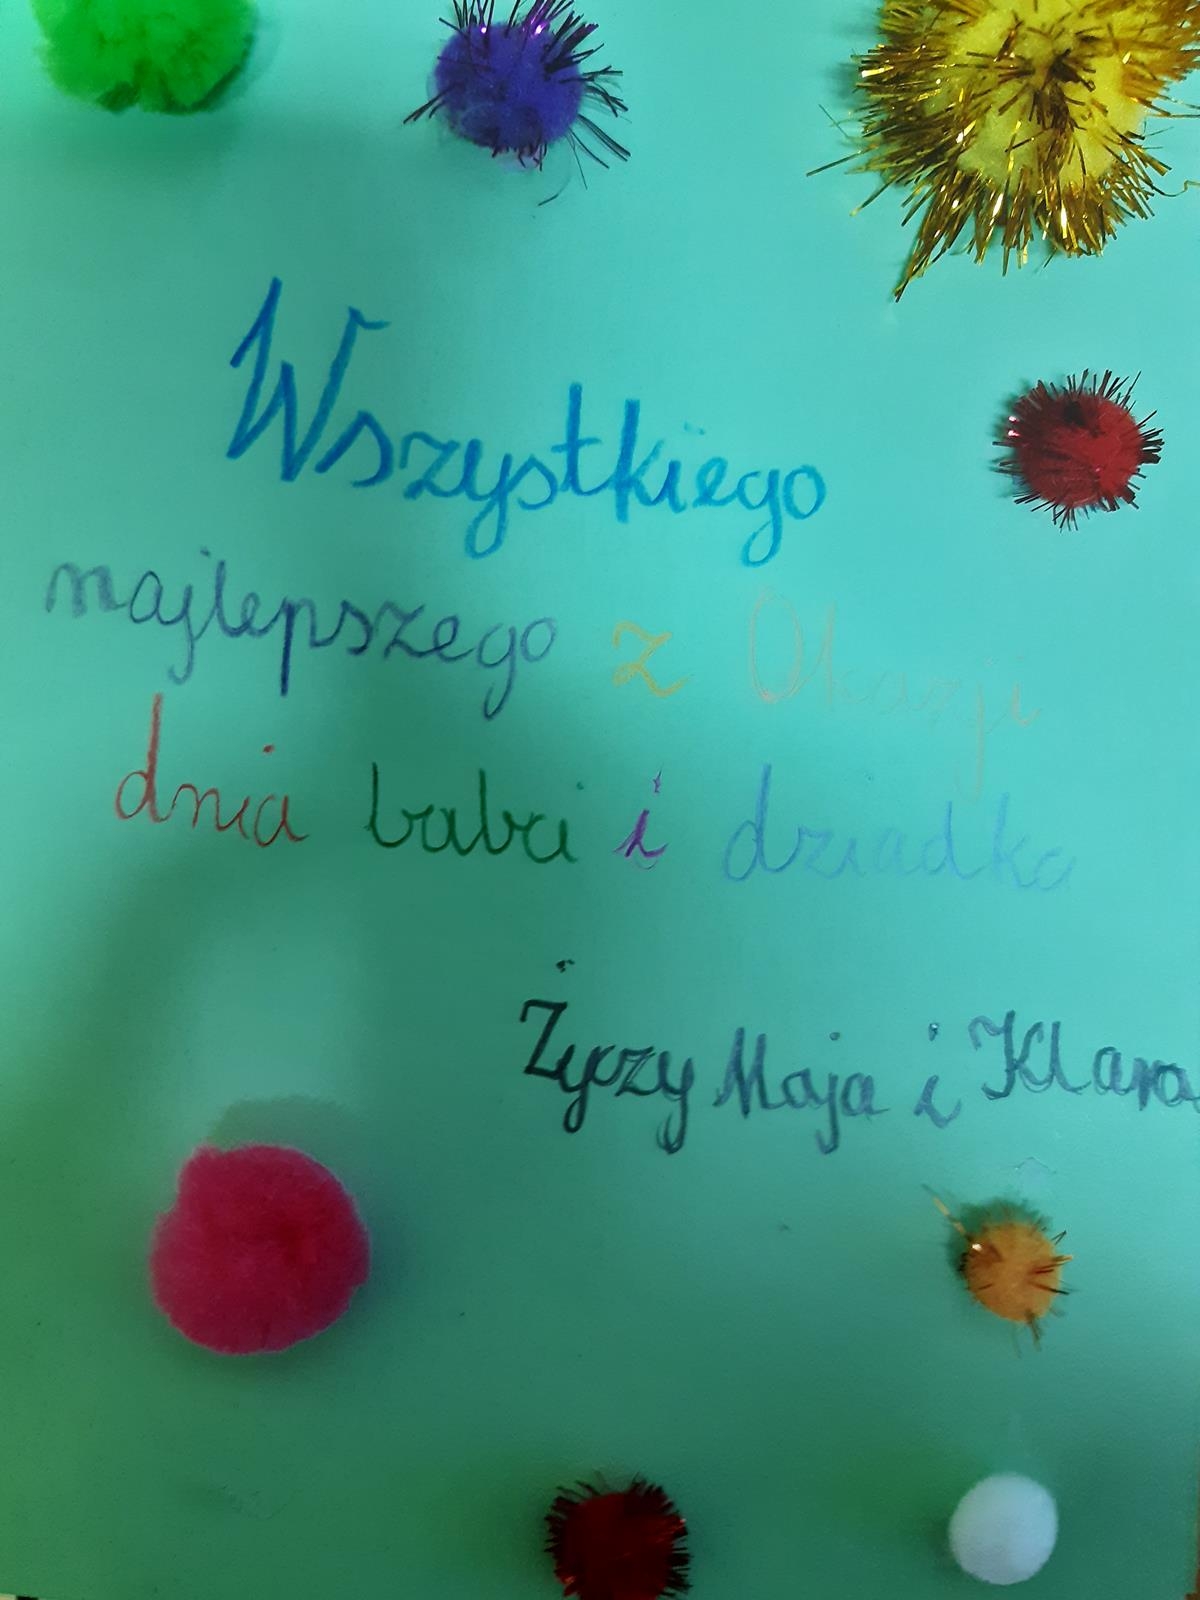 Wszystkiego
najlepszego z Okazji
dnia babci i dziadka
Życzy Maja i Klara